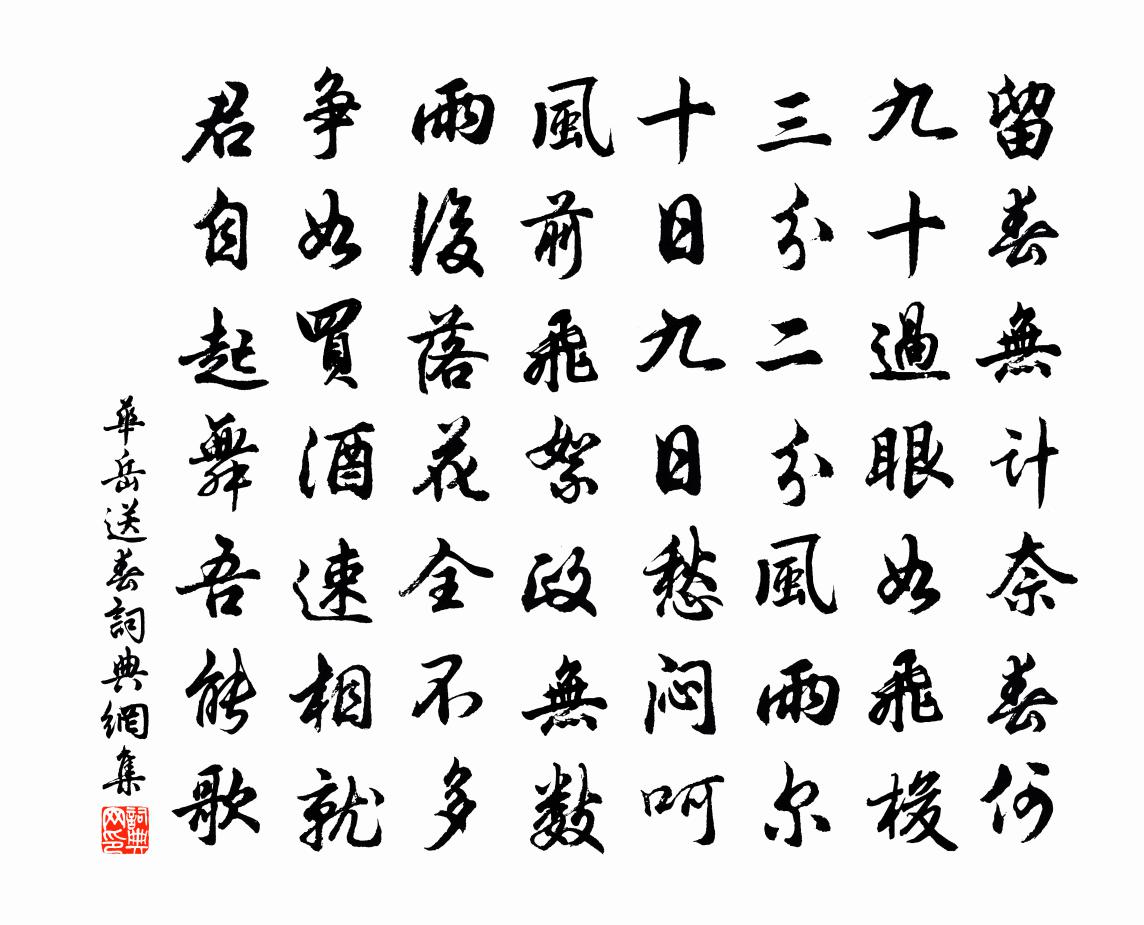 留春無計奈春何
九十過眼如飛梭
三分二分風雨尔
十日九日愁闷呵
風前飛絮政無数
雨後落花全不多
争如買酒速相就
君自起舞吾能歌
華岳送春詞典網集
詞典网印